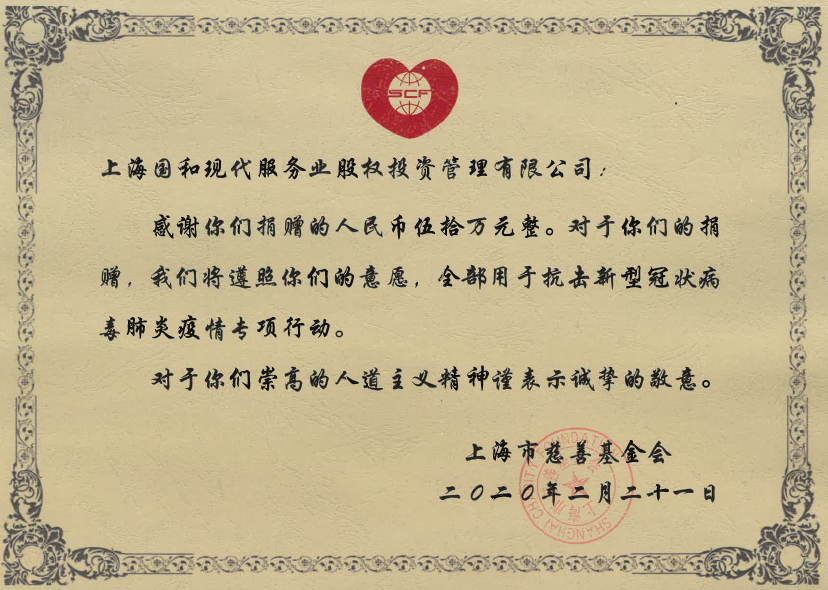 SCF
上海国和现代服务业股权投资管理有限公司：
感谢你们捐赠的人民币伍拾万元整。对于你们的捐
赠，我们将遵照你们的意愿，全部用于抗击新型冠状病
毒肺炎疫情专项行动。
对于你们崇高的人道主义精神谨表示诚挚的敬意。
上海市慈善基金会
二〇二〇年二月二十一日
SHANGHAI CHARITY FOUNDATION